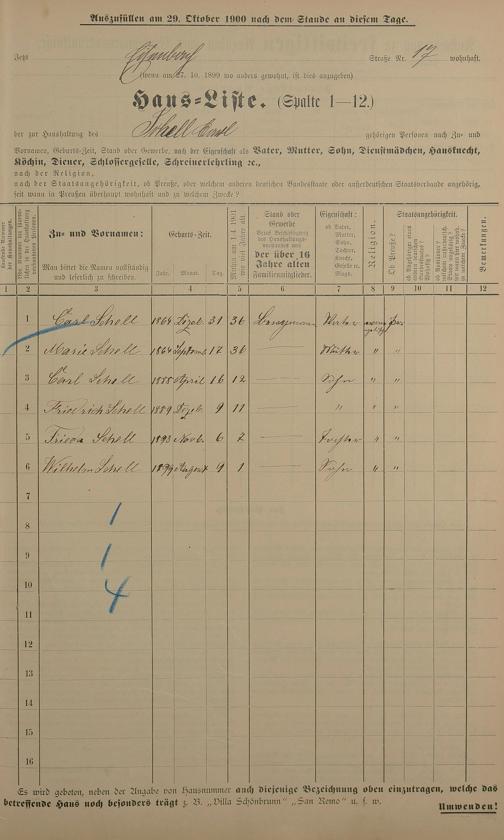 Auszufüllen am 29. Oktober 1900 nach dem Stande an diesem Tage.
Jetzt Straße Nr. 17 wohnhaft.
(wenn am 27. 10. 1899 wo anders gewohnt, ist dies anzugeben)
Haus-Liste. (Spalte 1—12.)
der zur Haushaltung des Schell Carl gehörigen Personen nach Zu- und
Vornamen, Geburts-Zeit, Stand oder Gewerbe, nach der Eigenschaft als Vater, Mutter, Sohn, Dienstmädchen, Hausknecht,
Köchin, Diener, Schlossergeselle, Schreinerlehrling ec.,
nach der Religion,
nach der Staatsangehörigkeit, ob Preuße, oder welchem anderen deutschen Bundesstaate oder außerdeutschen Staatsverbande angehörig,
seit wann in Preußen überhaupt wohnhaft und zu welchem Zwecke?
Zu- und Vornamen:
Man bittet die Namen vollständig
und leserlich zu schreiben.
Geburts-Zeit.
Jahr. Monat. Tag.
Mithin am 1.4.1901 wie viel Jahre alt.
Stand oder
Gewerbe
der über 16
Jahre alten
Familienglieder.
Eigenschaft:
ob Vater,
Mutter,
Sohn,
Tochter,
Knecht,
Geselle u.
Magd.
Religion.
Staatsangehörigkeit.
Ob Preuße?
Bemerkungen.
1 2 3 4 5 6 7 8 9 10 11 12
1 Carl Schell 1864 Dezb. 31 36 Bergmann Vater
2 Marie Schell 1864 Septemb. 17 36 Mutter " "
3 Carl Schell 1888 April 16 12 Sohn " "
4 Friedrich Schell 1889 Dezb. 9 11 " " "
5 Frieda Schell 1893 Novb. 6 7 Tochter " "
6 Wilhelm Schell 1899 August 9 1 Sohn " "
7
8 1
9 1
10 4
11
12
13
14
15
16
Es wird gebeten, neben der Angabe von Hausnummer auch diejenige Bezeichnung oben einzutragen, welche das
betreffende Haus noch besonders trägt z. B. „Villa Schönbrunn" „San Remo" u. s. w.
Umwenden!